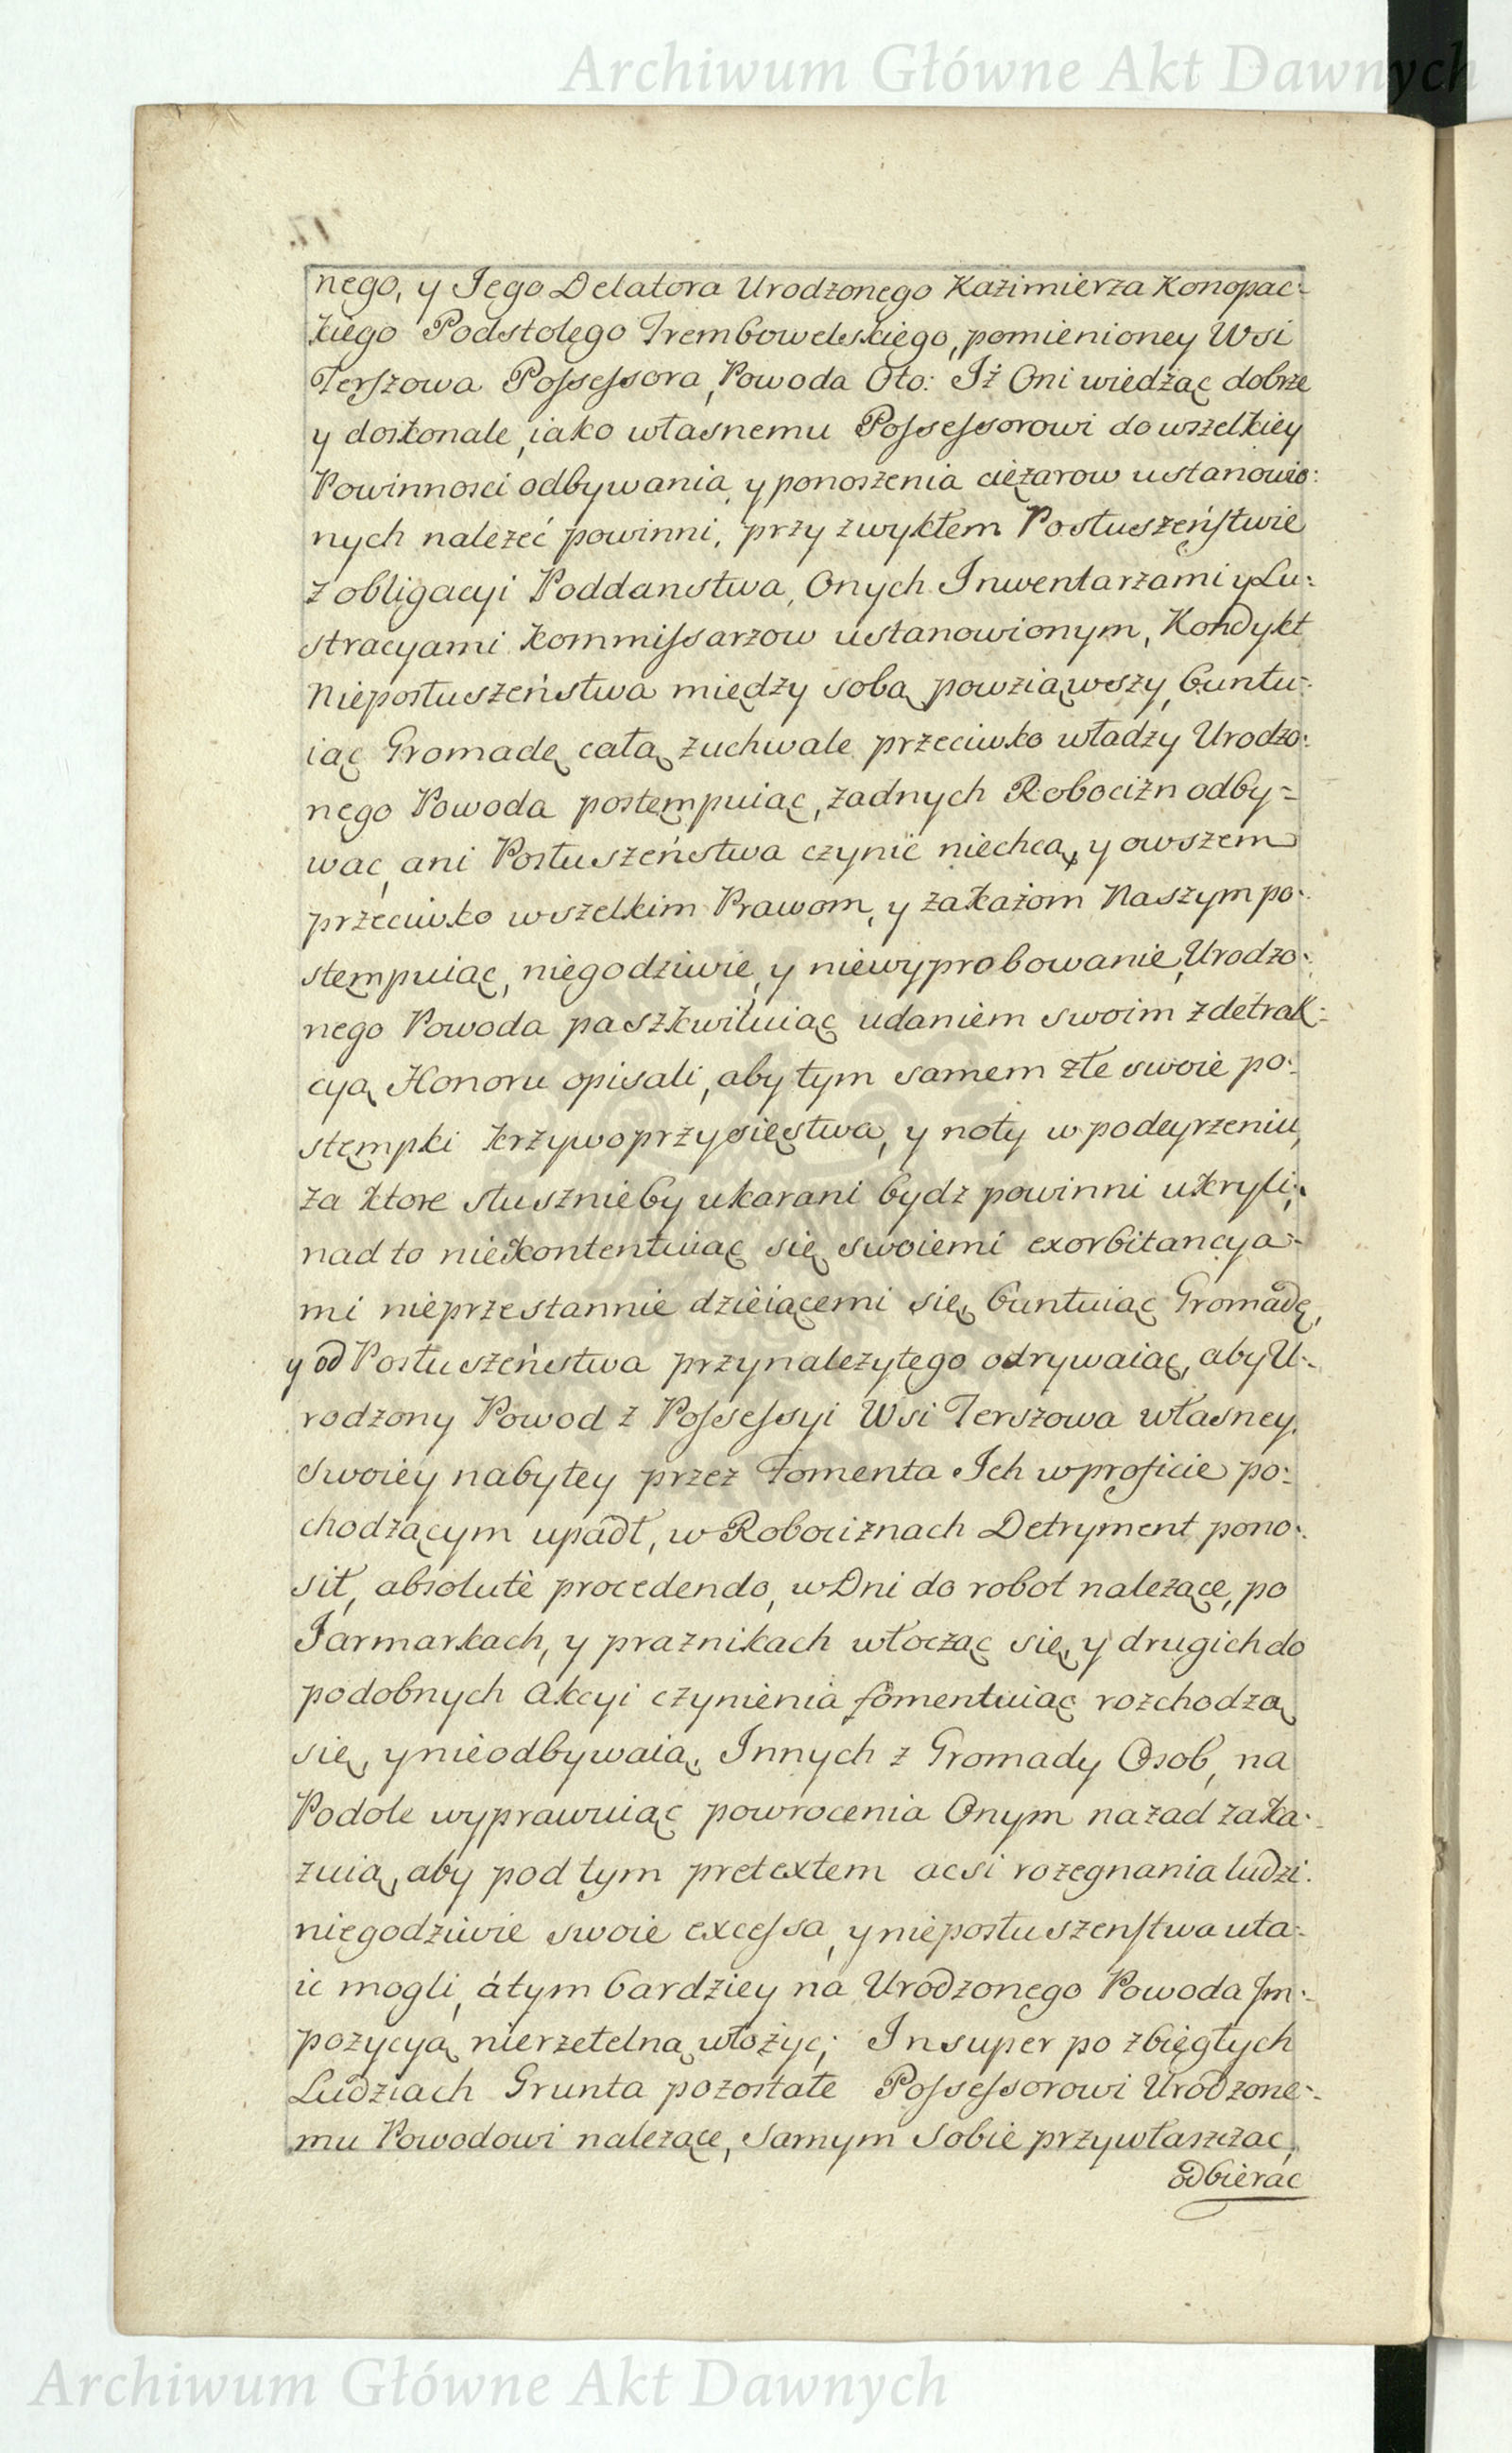 Archiwum Główne Akt Dawnych
nego, y Jego Delatora Urodzonego Kazimierza Konopac-
kiego Podstolego Trembowelskiego, pomienioney Wsi
Terszowa Possessora, Powoda Oto: Iż Oni wiedżąc dobrze
y doskonale, iako własnemu Possessorowi do wszelkiey
Powinnosci odbywania, y ponoszenia ciężarow ustanowio:
nych nalezeć powinni, przy zwykłem Posłuszeństwie
z obligacyi Poddanstwa, Onych Inwentarzami y Lu:
stracyami Kommissarzow ustanowionym, Kondykt
Nieposłuszeństwa między sobą powziąwszy, buntu:
iąc Gromadę całą, zuchwale przeciwko władzy Urodzo:
nego Powoda postęmpuiąc, żadnych Robocizn odby=
wac, ani Posłuszeństwa czynić niechcą, y owszem
przeciwko wszelkim Prawom, y zakazom Naszym po:
stęmpuiąc, niegodziwie, y niewyprobowanie, Urodzo:
nego Powoda paszkwiluiąc udaniem swoim z detrak:
cyą Honoru opisali, aby tym samem złe swoie po:
stęmpki krzywoprzysięstwa, y noty w podeyrzeniu,
za ktore słusznieby ukarani bydz powinni ukryli;
nad to niekontentuiąc się swoiemi exorbitancya-
mi nieprzestannie dzieiącemi się, buntuiąc Gromadę,
y od Posłuszeństwa przynalezytego odrywaiąc, aby U:
rodzony Powod z Possessyi Wsi Terszowa własney,
swoiey nabytey przez Fomenta Ich w proficie po:
chodzącym upadł, w Robociznach Detryment pono:
sił, absolutè procedendo, w Dni do robot nalezące, po
Jarmarkach, y praznikach włocząc się, y drugich do
podobnych akcyi czynienia fomentuiąc rozchodzą
się, y nieodbywaią, Innych z Gromady Osob, na
Podole wyprawuiąc powrocenia Onym nazad zaka:
zuią, aby pod tym pretextem acsi rozegnania ludzi
niegodziwie swoie excessa, y nieposłuszenstwa uta:
ic mogli, á tym bardziey na Urodzonego Powoda Im:
pozycyą nierzetelną włożyc; Insuper po zbiegłych
Ludziach Grunta pozostałe Possessorowi Urodzone:
mu Powodowi nalezące, samym sobie przywłaszczac,
odbierac
Archiwum Główne Akt Dawnych